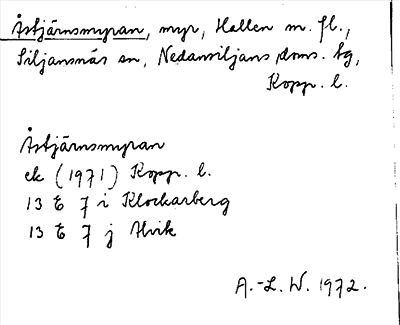 Åstjärnsmyran, myr, Hallen m. fl.,
Siljansnäs sn, Nedansiljans doms. tg,
Kopp. l.
Åstjärnsmyran
ek (1971) Kopp. l.
13 E 7 i Klockarberg
13 E 7 j Alvik
A.-L. W. 1972.